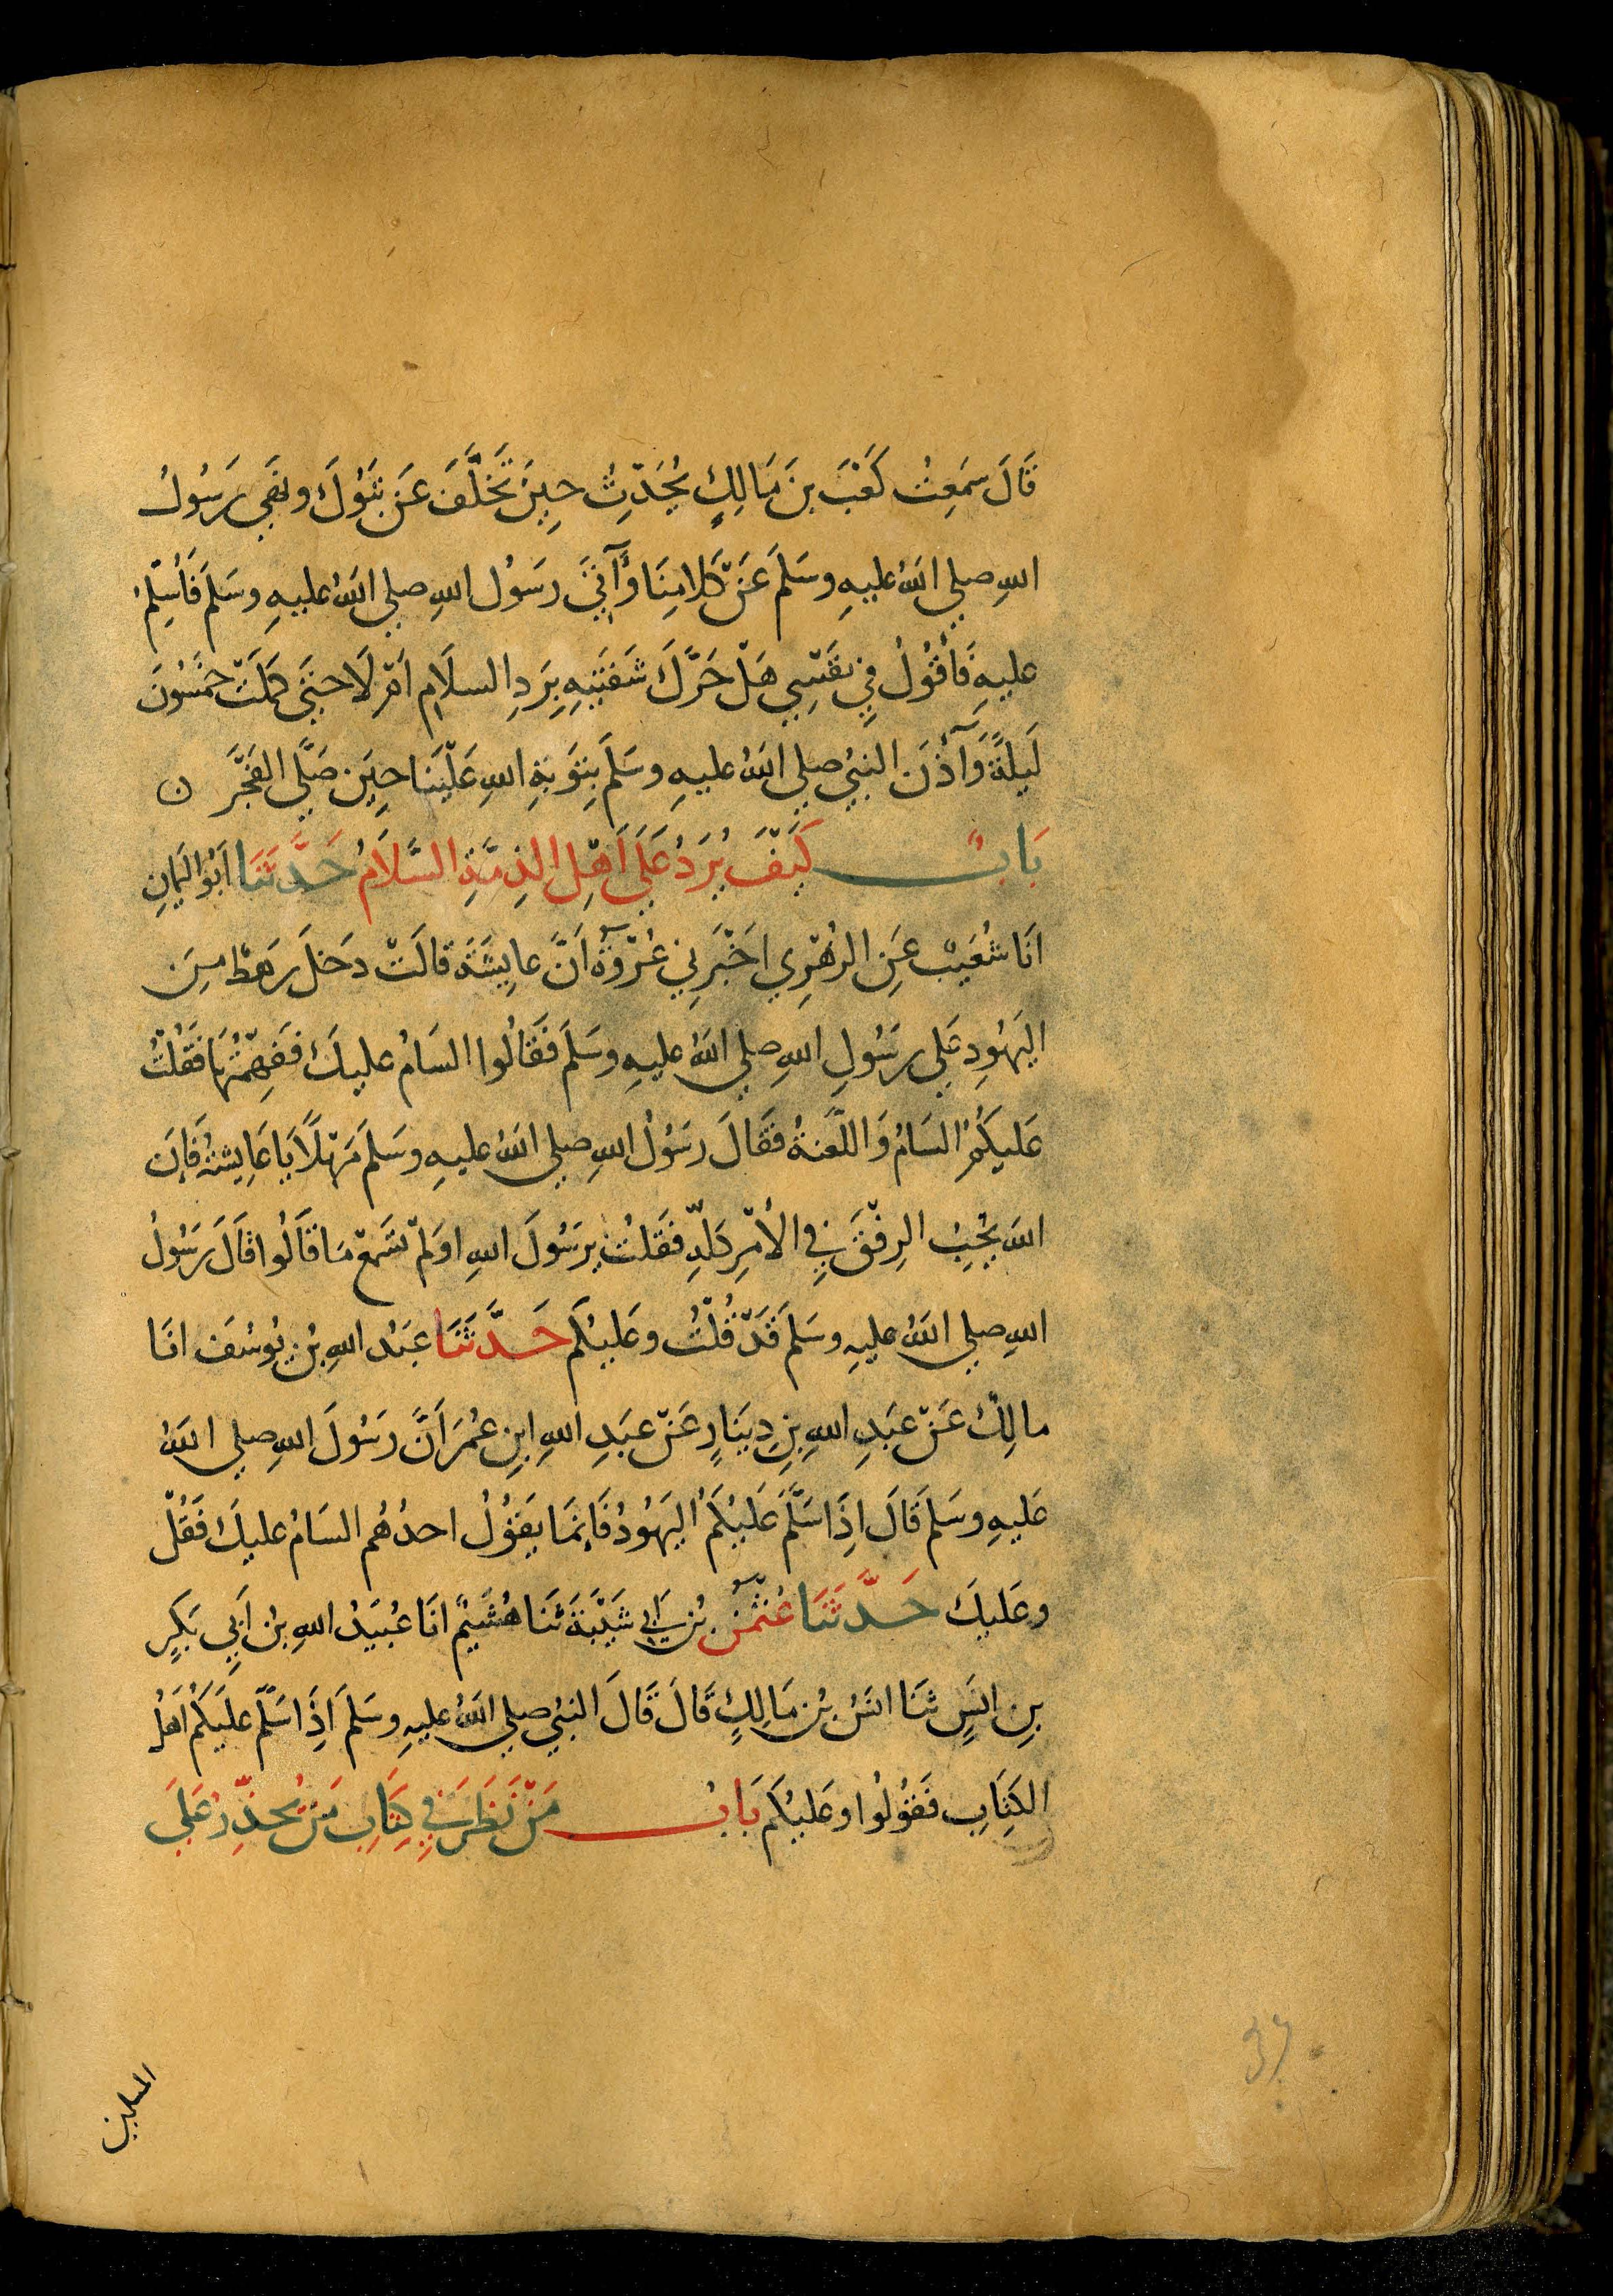 قَالَ سَمِعْتُ كَعْبَ بنَ مَالِكٍ يُحَدِّثُ حِينَ تَخَلَّفَ عَن تَبُوْكَ ونَهَي رَسُولُ
اللهِ صلي اللهُ عليهِ وسَلَمَ عَنْ كَلامِنَا وَآتِيَ رسَوُل اللهِ صلي اللهُ عليهِ وسَلَمَ فَأُسَلِمُ
عليهِ فَأَقُوْلُ فِي نَفْسِي هَلْ حَرَّكَ شَفَتَيهِ بِرَدِ السلاَمِ اَمْ لَا حتَي كَمَلَتْ خَمْسُونَ
لَيلَةً وَآذَنَ النبيُ صلي اللهُ عليهِ وسَلمَ بِتَوْبَةِ اللهِ عَلَيْنَا حِيَن صَلَّى الفَجْرَ ن
بَابٌ كَيْفَ يُرَدُ عَلَي اَهْلِ الذِمَّةِ السَّلاَمُ حَدَّثَنَا اَبُو اليَمانِ
انَا شُعَيبٌ عَنِ الزُهْرِي اخَبْرَنِي عُرْوَةُ اَنَّ عايِشَةَ قالَتْ دَخلَ رَهطٌ مِنَ
اليَهُودِ عَلي رسَُولِ اللهِ صلي اللهُ عليهِ وسَلَمَ فَقَالُوا السَامُ عليكَ فَفَهِمْتُهَا فَقُلْتُ
عَليكُمُ السَامُ وَاللَّعنةُ فقَالَ رسَوُلُ اللهِ صلي اللهُ عليهِ وسَلمَ مَهْلًا يَا عَايِشةُ فَاِنَ
اللهَ يُحِبُ الرِفْقَ فِي الأَمْرِ كلِّهِ فقَلتُ يرَسُولَ اللهِ اوَلَمْ تسَمَعْ مَا قَالُوا قَالَ رَسُولُ
اللهِ صلي اللهُ عليهِ وسَلمَ قَدْ قُلْتُ وعَليْكُم حَدَّثَنَا عَبدُ اللهِ بنُ يُوسُفَ انَا
مالِكٌ عَنْ عبَدِ اللهِ بنِ دِينَارٍ عَنْ عبَدِ اللهِ ابنِ عُمَرَ اَنَّ رسَُولَ اللهِ صلي اللهُ
عَليهِ وسَلمَ قَالَ اِذَا سَلَّمَ عَلَيْكُمُ اليَهُودُ فَاِنمَا يقَوُلُ احدُهُم السَامُ عليكَ فَقُلْ
وعَليكَ حَدَّثَنَا عُثْمٰنُ بنُ اَبي شَيْبَةَ ثنَا هُشَيمٌ انَا عُبَيْدُ اللهِ بنُ اَبِي بَكرٍ
بنِ انسٍ ثنَا انسَُ بنُ مَالِكٍ قَالَ قَالَ النبيُ صلي اللهُ عليهِ وسَلمَ اذَِا سَلَّمَ عليَكُم اَهْلُ
الكِتَابِ فَقوُلُوا وعَليْكُم بَابُ مَنْ نَظَرَ فِي كِتَابِ مَنْ يُحذَّرُ عَلَي
المسلمين
37